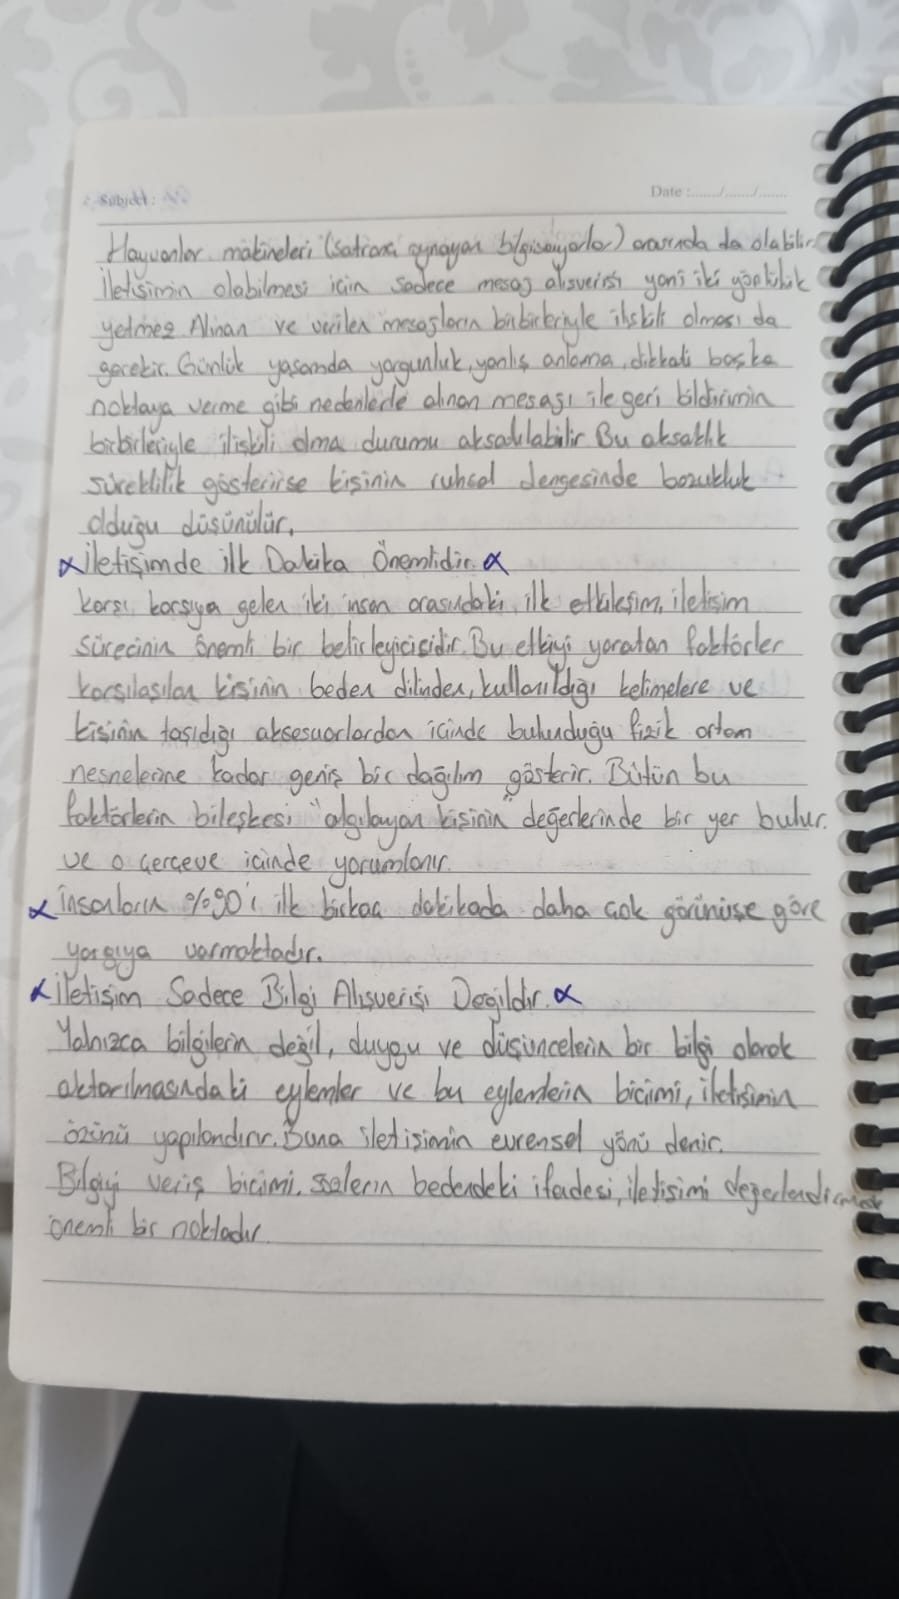 Subject :
Date :....../....../......
Hayvanlar makineleri (satranç oynayan bilgisayarlar) arasında da olabilir
İletişimin olabilmesi için sadece mesaj alışverişi yani iki yönlülük
yetmez Alınan ve verilen mesajların birbirleriyle ilişkili olması da
gerekir. Günlük yaşamda yorgunluk, yanlış anlama, dikkati başka
noktaya verme gibi nedenlerle alınan mesajı ile geri bildirimin
birbirleriyle ilişkili olma durumu aksatılabilir Bu aksaklık
süreklilik gösterirse kişinin ruhsal dengesinde bozukluk
olduğu düşünülür.
α İletişimde ilk Dakika Önemlidir. α
karşı karşıya gelen iki insan arasındaki ilk etkileşim, iletişim
sürecinin önemli bir belirleyicisidir. Bu etkiyi yaratan faktörler
karşılaşılan kişinin beden dilinden, kullanıldığı kelimelere ve
kişinin taşıdığı aksesuarlardan içinde bulunduğu fizik ortam
nesnelerine kadar geniş bir dağılım gösterir. Bütün bu
faktörlerin bileşkesi "algılayan kişinin" değerlerinde bir yer bulur.
ve o çerçeve içinde yorumlanır.
α İnsanların %90'ı ilk birkaç dakikada daha çok görünüşe göre
yargıya varmaktadır.
α İletişim Sadece Bilgi Alışverişi Değildir. α
Yalnızca bilgilerin değil, duygu ve düşüncelerin bir bilgi olarak
aktarılmasındaki eylemler ve bu eylemlerin biçimi, iletişimin
özünü yapılandırır. Buna iletişimin evrensel yönü denir.
Bilgiyi veriş biçimi. bedendeki ifadesi, iletişimi
önemli bir noktadır.